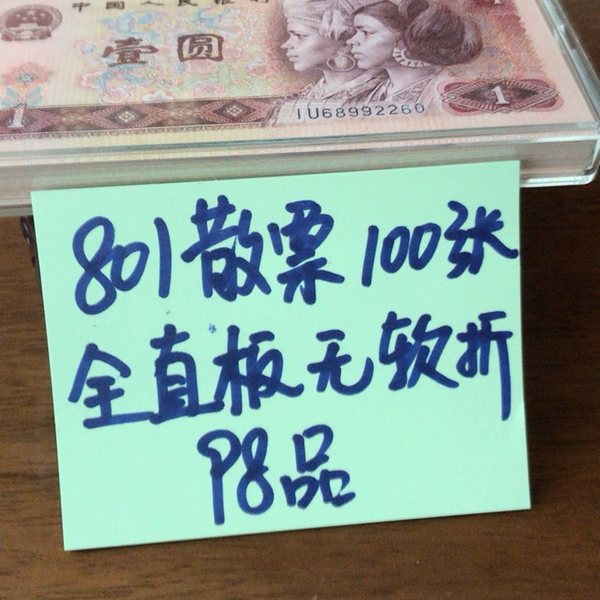 中国人民银行
壹圆
IU68992260
1
1
801散票100张
全直板无软折
98品